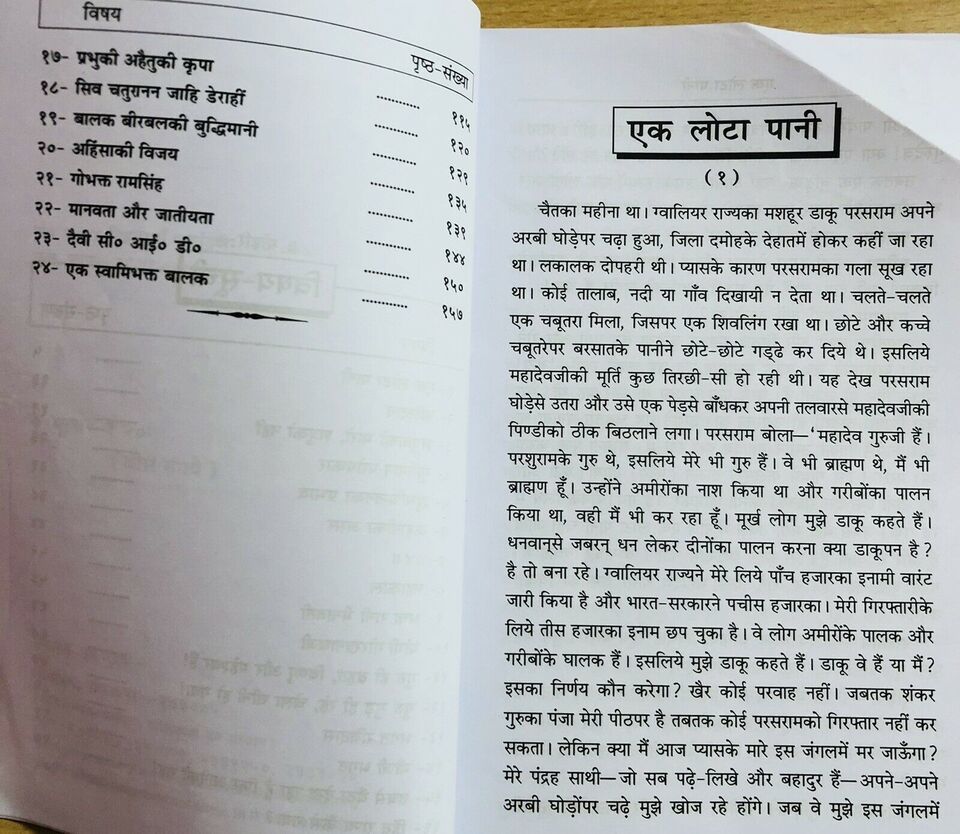 विषय
पृष्ठ-संख्या
१७- प्रभुकी अहैतुकी कृपा ........... ११५
१८- सिव चतुरानन जाहि डेराहीं ........... १२०
१९- बालक बीरबलकी बुद्धिमानी ........... १२९
२०- अहिंसाकी विजय ........... १३५
२१- गोभक्त रामसिंह ........... १३९
२२- मानवता और जातीयता ........... १४४
२३- दैवी सी० आई० डी० ........... १५०
२४- एक स्वामिभक्त बालक ........... १५७
एक लोटा पानी
(१)
चैतका महीना था। ग्वालियर राज्यका मशहूर डाकू परसराम अपने
अरबी घोड़ेपर चढ़ा हुआ, जिला दमोहके देहातमें होकर कहीं जा रहा
था। लकालक दोपहरी थी। प्यासके कारण परसरामका गला सूख रहा
था। कोई तालाब, नदी या गाँव दिखायी न देता था। चलते-चलते
एक चबूतरा मिला, जिसपर एक शिवलिंग रखा था। छोटे और कच्चे
चबूतरेपर बरसातके पानीने छोटे-छोटे गड्ढे कर दिये थे। इसलिये
महादेवजीकी मूर्ति कुछ तिरछी-सी हो रही थी। यह देख परसराम
घोड़ेसे उतरा और उसे एक पेड़से बाँधकर अपनी तलवारसे महादेवजीकी
पिण्डीको ठीक बिठलाने लगा। परसराम बोला—'महादेव गुरुजी हैं।
परशुरामके गुरु थे, इसलिये मेरे भी गुरु हैं। वे भी ब्राह्मण थे, मैं भी
ब्राह्मण हूँ। उन्होंने अमीरोंका नाश किया था और गरीबोंका पालन
किया था, वही मैं भी कर रहा हूँ। मूर्ख लोग मुझे डाकू कहते हैं।
धनवान्‌से जबरन् धन लेकर दीनोंका पालन करना क्या डाकूपन है?
है तो बना रहे। ग्वालियर राज्यने मेरे लिये पाँच हजारका इनामी वारंट
जारी किया है और भारत-सरकारने पचीस हजारका। मेरी गिरफ्तारीके
लिये तीस हजारका इनाम छप चुका है। वे लोग अमीरोंके पालक और
गरीबोंके घालक हैं। इसलिये मुझे डाकू कहते हैं। डाकू वे हैं या मैं?
इसका निर्णय कौन करेगा? खैर कोई परवाह नहीं। जबतक शंकर
गुरुका पंजा मेरी पीठपर है तबतक कोई परसरामको गिरफ्तार नहीं कर
सकता। लेकिन क्या मैं आज प्यासके मारे इस जंगलमें मर जाऊँगा?
मेरे पंद्रह साथी—जो सब पढ़े-लिखे और बहादुर हैं—अपने-अपने
अरबी घोड़ोंपर चढ़े मुझे खोज रहे होंगे। जब वे मुझे इस जंगलमें